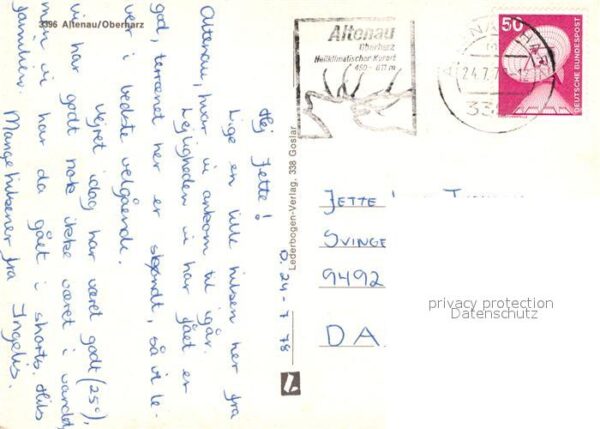 3396 Altenau/Oberharz
Hej Jette!
Lige en lille hilsen her fra
Altenau, hvor vi ankom til igår.
Lejligheden vi har fået er
god, terrænet her er skøndt, så vi le-
ver i bedste velgående.
Vejret idag har været godt (25°),
vi har godt nok ikke været i vandet,
men vi har da gået i shorts. Hils
familien.
Mange hilsener fra Ingelis.
D. 24-7-78
Lederbogen-Verlag, 338 Goslar
Altenau
Oberharz
Heilklimatischer Kurort
450 - 611 m
24.7.7
338
50
DEUTSCHE BUNDESPOST
JETTE
SVINGE
9492
DA
privacy protection
Datenschutz